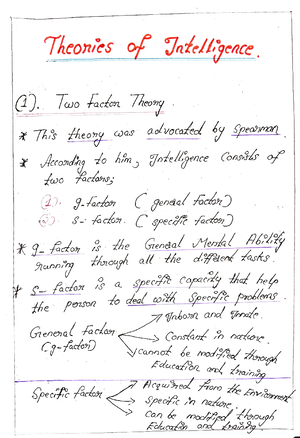 Theories of Intelligence.
(1). Two Factor Theory.
* This theory was advocated by Spearman
* According to him, Intelligence consists of
two factors;
1. g-factor (general factor)
2. s-factor. (specific factor)
* g-factor is the General Mental Ability
running through all the different tasks.
* s-factor is a specific capacity that help
the person to deal with specific problems.
General factor
(g-factor)
Inborn and Innate.
Constant in nature.
cannot be modified through
Education and training
Specific factor
Acquired from the Environment
Specific in nature.
can be modified through
Education and training